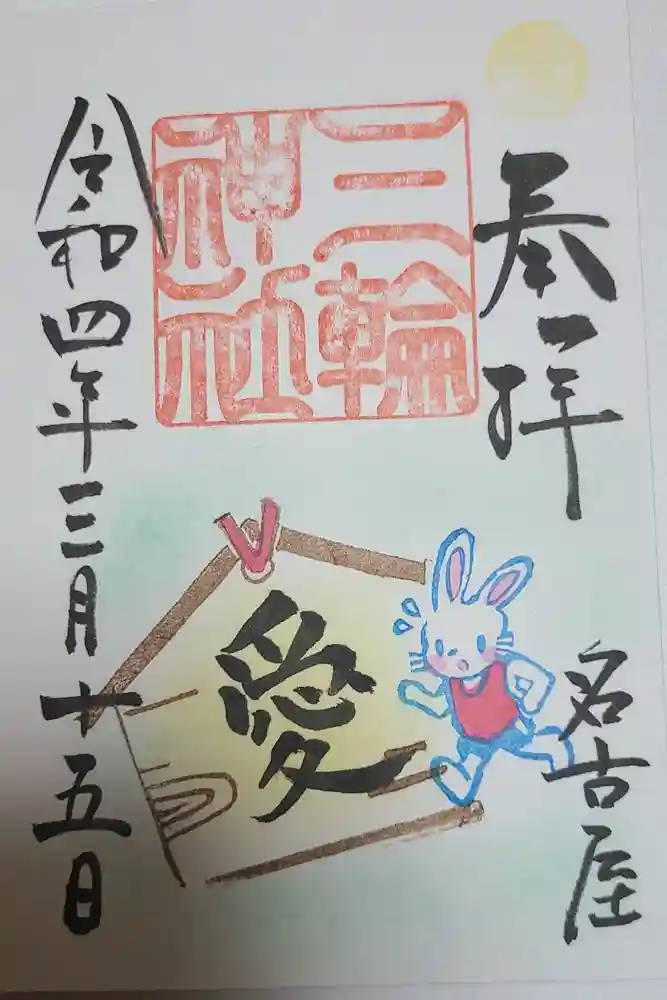 奉拝
名古屋
三輪
神社
愛
令和四年三月十五日